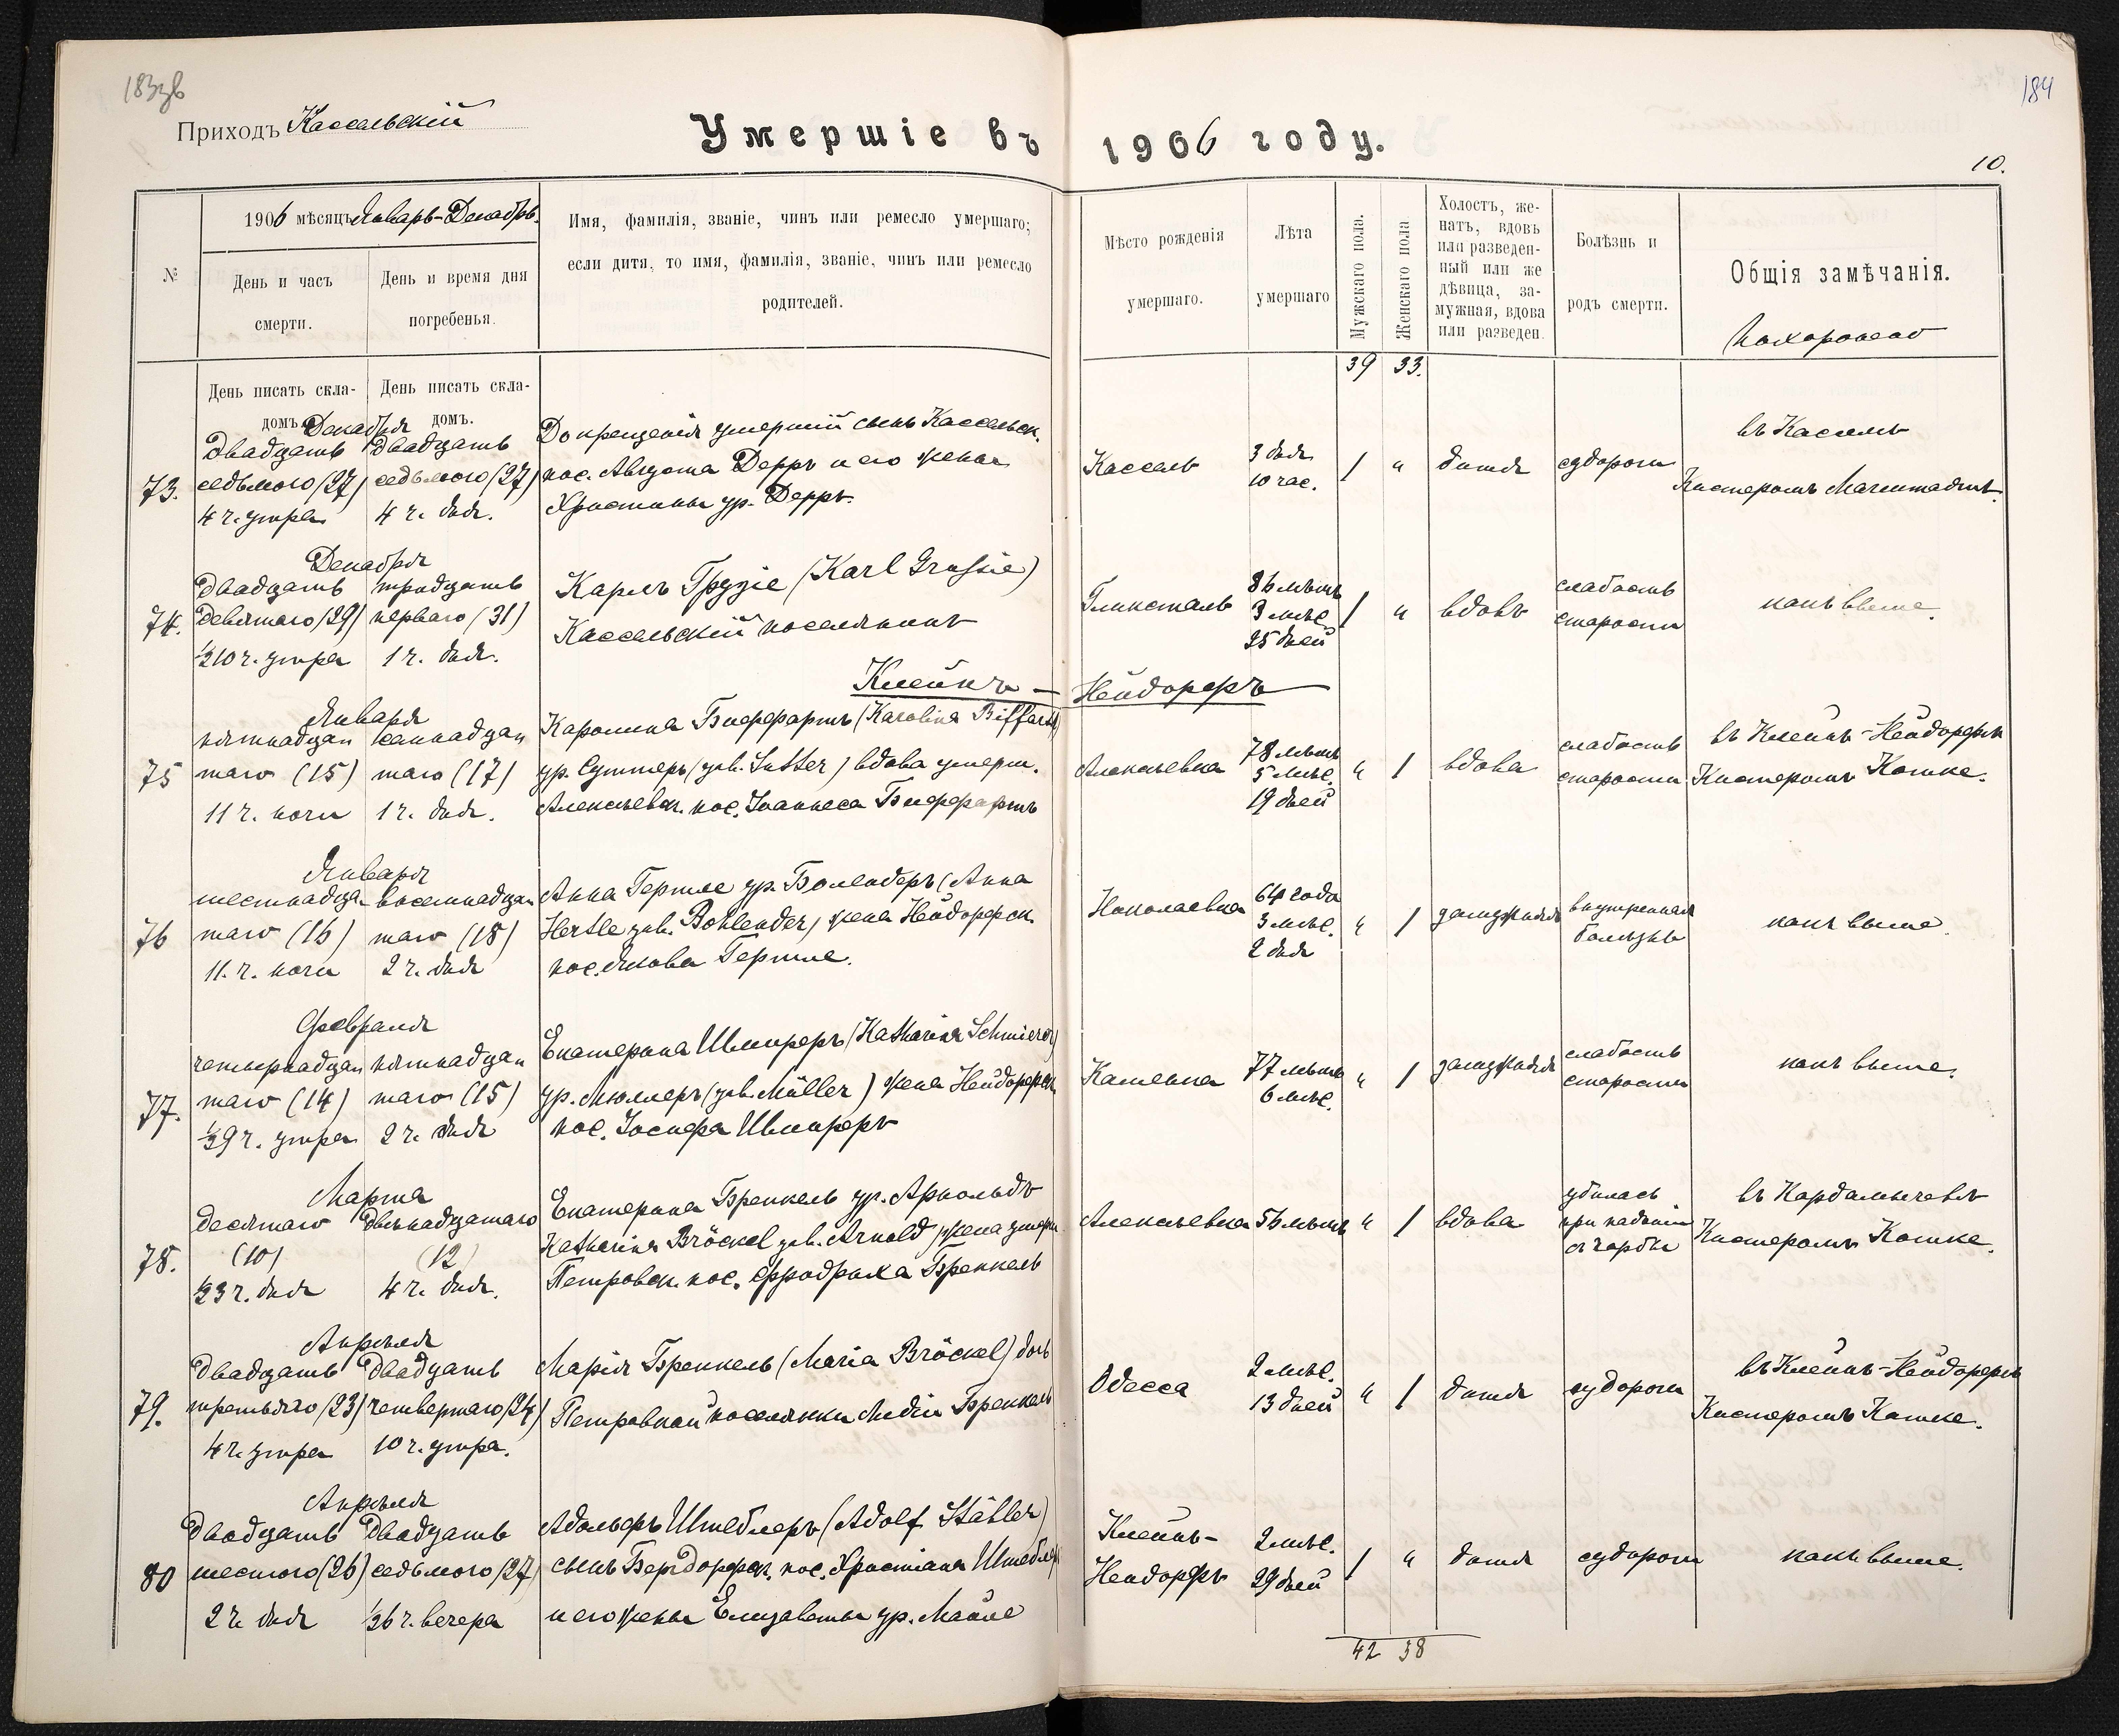 183зв
184
Приходъ Кассельскій
Умершіе въ 1906 году.
10.
№
1906 мѣсяцъ Январь-Декабрь.
День и часъ
смерти.
День и время дня
погребенья.
Имя, фамилія, званіе, чинъ или ремесло умершаго;
если дитя, то имя, фамилія, званіе, чинъ или ремесло
родителей.
Мѣсто рожденія
умершаго.
Лѣта
умершаго
Мужскаго пола.
Женскаго пола
Холостъ, же-
натъ, вдовъ
или разведен-
ный или же
дѣвица, за-
мужная, вдова
или разведен.
Болѣзнь и
родъ смерти.
Общія замѣчанія.
Похоронено
День писать скла-
домъ.
День писать скла-
домъ.
39 33.
73.
Декабря
двадцать
седьмого (27)
4 ч. утра
двадцать
седьмого (27)
4 ч. дня.
До крещенія умершій сынъ Кассельск.
пос. Августа Дерръ и его жены
Христины ур. Дерръ.
Кассель
3 дня
10 час.
1 "
дитя
судороги
въ Касселѣ
Кистеромъ
74.
Декабря
двадцать
девятаго (29)
½10 ч. утра
тридцать
перваго (31)
1 ч. дня.
Карлъ Грузіе (Karl Grusie)
Кассельскій поселянинъ
Гликсталь
86 лѣтъ
3 мѣс.
25 дней
1 "
вдовъ
слабость
старости
какъ выше.
Клейнъ – Нейдорфъ
75
Января
пятнадца
таго (15)
11 ч. ночи
семнадца
таго (17)
1 ч. дня.
Каролина Биффартъ (Karolina Biffart)
ур. Суттеръ (geb. Sutter) вдова умерш.
Алексѣевск. пос. Іоаннеса Биффартъ
Алексѣевка
78 лѣтъ
5 мѣс.
19 дней
" 1
вдова
слабость
старости
въ Клейнъ-Нейдорфѣ
Кистеромъ Кошке.
76
Января
шестнадца
таго (16)
11. ч. ночи
восемнадца
таго (18)
2 ч. дня
Анна Гертле ур. Болендеръ (Anna
Hertle geb. Bohlender) жена Нейдорфск.
пос. Якова Гертле.
Николаевка
64 года
3 мѣс.
2 дня
" 1
замужняя
внутренняя
болѣзнь
какъ выше.
77.
Февраля
четырнадца
таго (14)
½9 ч. утра
пятнадца
таго (15)
2 ч. дня
Екатерина Шмиреръ (Katharina Schmierer)
ур. Мюллеръ (geb. Müller) жена Нейдорфск.
пос. Іосифа Шмиреръ
Каменка
77 лѣтъ
6 мѣс.
" 1
замужняя
слабость
старости
какъ выше.
78.
Марта
десятаго
(10)
½3 ч. дня
двѣнадцатаго
(12)
4 ч. дня.
Екатерина Бреккель ур. Арнольдъ
Katharina Bröckel geb. Arnold жена умерш.
Петровск. пос. Фридриха Бреккель
Алексѣевка
56 лѣтъ
" 1
вдова
убилась
при паденіи
съ
въ Кардамычевѣ
Кистеромъ Кошке.
79.
Апрѣля
двадцать
третьяго (23)
4 ч. утра
двадцать
четвертаго (24)
10 ч. утра.
Марія Бреккель (Maria Bröckel) дочь
Петровской поселянки Лидіи Бреккель
Одесса
2 мѣс.
13 дней
" 1
дитя
судороги
въ Клейнъ-Нейдорфѣ
Кистеромъ Кошке.
80
Апрѣля
двадцать
шестого (26)
2 ч. дня
двадцать
седьмого (27)
½6 ч. вечера
Адольфъ Штеблеръ (Adolf Stäbler)
сынъ Бергдорфск. пос. Христіана Штеблеръ
и его жены Елизаветы ур. Майле
Клейнъ-
Нейдорфъ
2 мѣс.
29 дней
1 "
дитя
судороги
какъ выше.
42 38